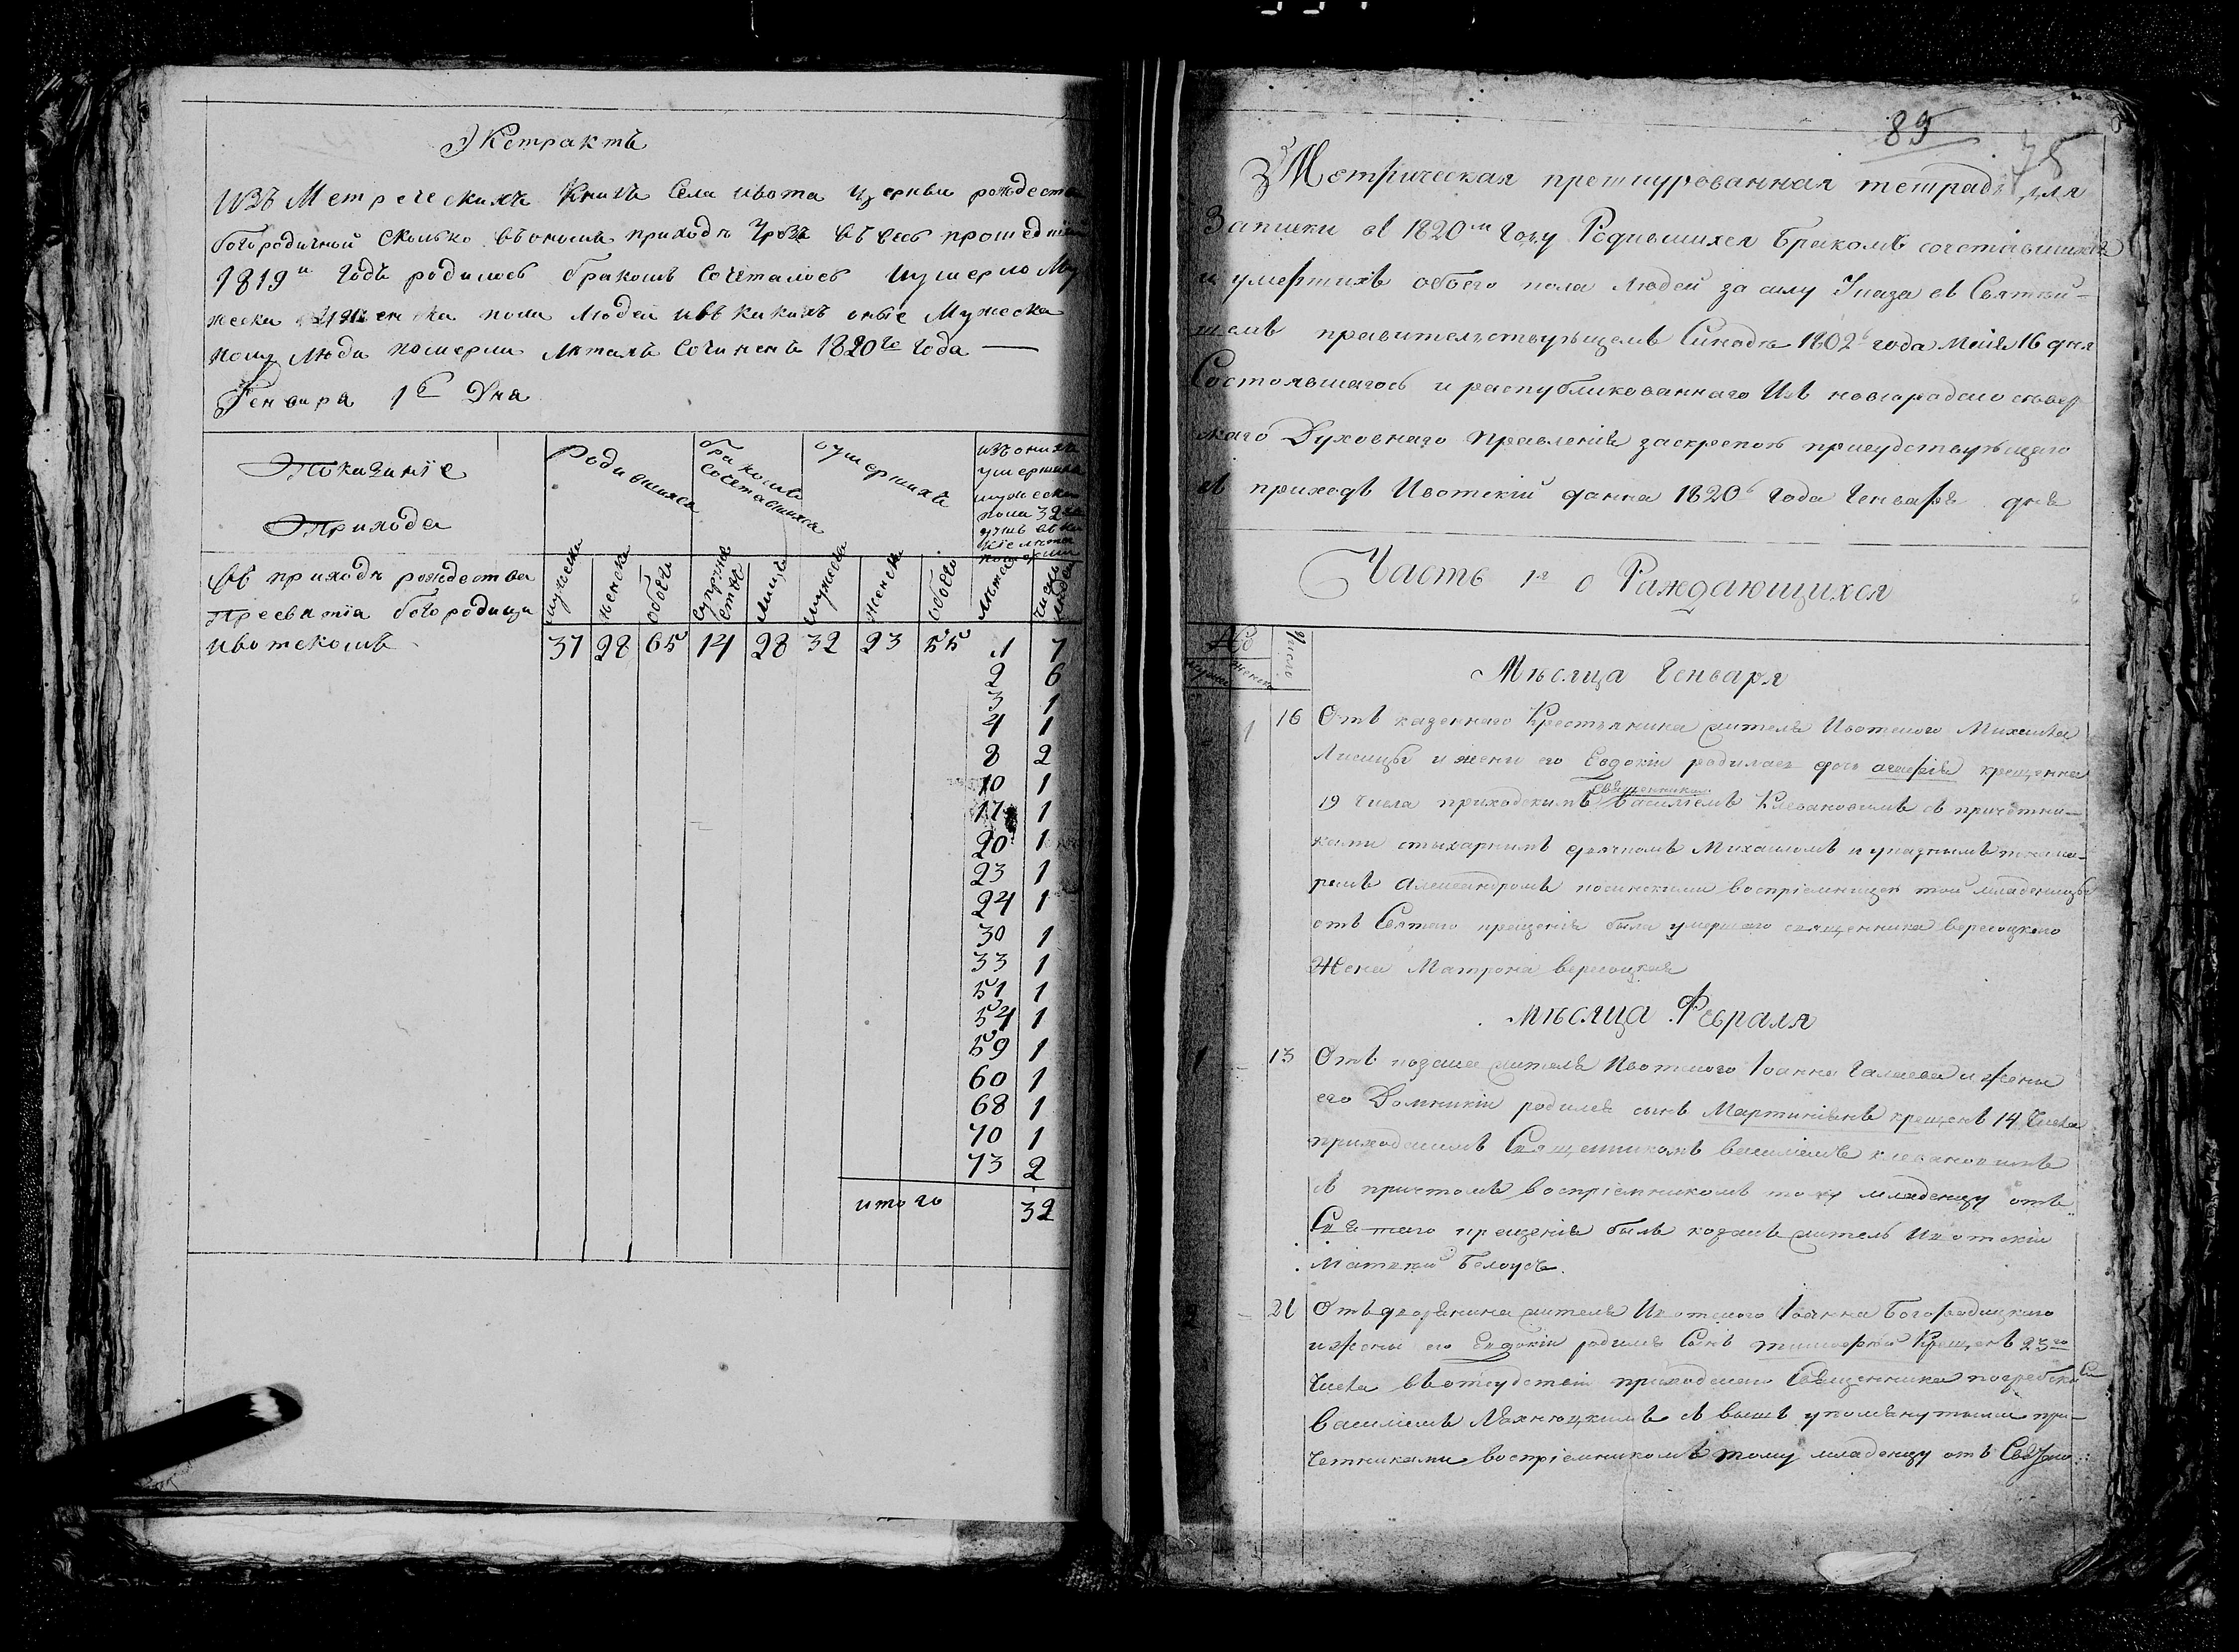 Экстрактъ
изъ Метреческихъ Книгъ Села ивота церкви рождества
богородичной сколько въономъ приходѣ чрозъ въ весь прошедшій
1819й годъ родилось бракомъ сочеталось иумерло Му
жеска иженска пола людей ивъ какихъ оные Мужеска
полу люди померли лѣтахъ сочиненъ 1820го года —
Генваря 1е Дня
Показаніе
Прихода
Родившихся
бракомъ сочетавшихся
оумершихъ
изъ онихъ
умершихъ
мужеска
пола 32
душъ въ ка
кіе лѣта
померли
мужеска
женска
обоего
супруже
ствъ
лицъ
мужеска
женска
обоего
лѣта
число
людей
Въ приходѣ рождества
Пресвятія богородици
ивотскомъ
37 28 65 14 28 32 23 55 1 7
2 6
3 1
4 1
8 2
10 1
17 1
20 1
23 1
24 1
30 1
33 1
51 1
54 1
59 1
60 1
68 1
70 1
73 2
итого 32
89
75
Метрическая прешнурованная тетрадь для
Записки въ 1820м Году Родившихся бракомъ сочетавшихся
и умершихъ обоего пола людей за силу Указа въ Святѣй-
шемъ правительствующемъ Синодѣ 1802 года маія 16 дня
Состоявшагось и распубликованнаго Изъ новгородсио север
скаго Духовнаго правленія заскрепою присудствующаго
въ приходъ Ивотскій данна 1820 года Генваря дня
Часть 1я о Раждающихся
№
мужеск
женска
Число
Мѣсяца Генваря
1 16 Отъ казенного Крестьянина жителя Ивотского Михаила
Лисицы и жены его Евдокіи родилась дочь крещенна
священникомъ
19 числа приходскимъ василіемъ Клевановимъ съ причетни-
ками стихарнимъ дьячкомъ Михаиломъ и указнымъ понама-
ремъ Александромъ воспріемницею той младеницы
отъ Святаго крещенія была умершаго священника вересоцкого
Жена Матрона вересоцкая
мѣсяца Февраля
1 - 13 Отъ козака жителя Ивотского Іоанна и жены
его Домникіи родился сынъ Мартиніянъ крещенъ 14 числа
приходскимъ Священникомъ василіемъ клевановимъ
съ причтомъ воспріемникомъ тому младенцу отъ
Святаго крещенія былъ козакъ житель Ивотскій
Матвей Белоусъ.
2 - 21 Отъ дворянина жителя Ивотского Іоанна Богородицкого
и жены его Евдокіи родился Сынъ тимофей Крещенъ 23го
числа вотсудствіи приходского Священника
Василіемъ съ вышъ упомянутыми при-
четниками воспріемникомъ тому младенцу отъ Святаго